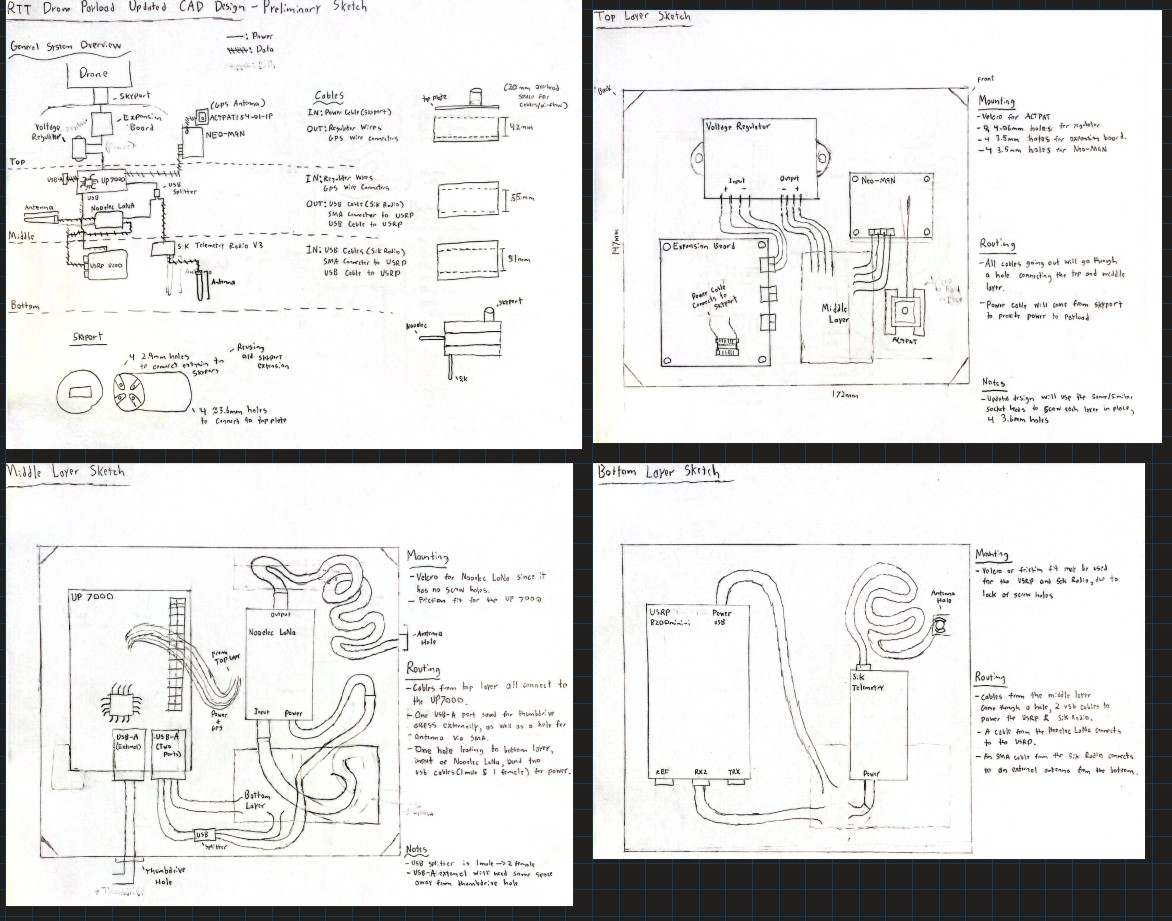 RTT Drone Payload Updated CAD Design - Preliminary Sketch
General System Overview
: Power
: Data
Drone
Skyport
Expansion
Board
Voltage
Regulator
(GPS Antenna)
ACTPAT154-01-IP
NEO-M9N
Top
USB-A
UP 7000
USB
USB
Splitter
Antenna
Nooelec LaNa
Middle
SiK Telemetry Radio V3
USRP B200
Antenna
Bottom
Cables
IN: Power Cable (Skyport)
OUT: Regulator Wires
GPS Wire Connectors
IN: Regulator Wires
GPS Wire Connectors
OUT: USB Cable (SiK Radio)
SMA Connector to USRP
USB Cable to USRP
IN: USB Cables (SiK Radio)
SMA Connector to USRP
USB Cable to USRP
top plate
(20mm overhead
space for
42mm
55mm
51mm
Skyport
Nooelec
SiK
Skyport
4 2.9mm holes
to connect extension to
skyport
Reusing
old skyport
extension
4 ≈3.6mm holes
to connect to top plate
Top Layer Sketch
Back
Front
147mm
172mm
Voltage Regulator
Input
Output
+ - - +
Neo-M9N
Expansion Board
Power Cable
Connects to
Skyport
Middle
Layer
ACTPAT
Mounting
- Velcro for ACTPAT
4.06mm holes for regulator
- 4 3.5mm holes for expansion board.
- 4 3.5mm holes for Neo-M9N
Routing
- All cables going out will go through
a hole connecting the top and middle
layer.
- Power cable will come from skyport
to provide power to payload
Notes
- Updated design will use the same/similar
socket heads to screw each layer in place,
4 3.6mm holes
Middle Layer Sketch
UP 7000
From
Top Layer
Power
+
GPS
USB-A
(External)
USB-A
(Two
Ports)
Output
Nooelec LaNa
Input
Power
Bottom
Layer
USB
Splitter
Antenna
Hole
Thumbdrive
Hole
Mounting
- Velcro for Nooelec LaNa since it
has no screw holes.
- Friction fit for the UP 7000
Routing
- Cables from top layer all connect to
the UP7000.
- One USB-A port saved for thumbdrive
access externally, as well as a hole for
Antenna via SMA.
- One hole leading to bottom layer,
input of Nooelec LaNa, and two
usb cables (1 male & 1 female) for power.
Notes
- USB splitter is 1 male → 2 female
- USB-A external will need some space
away from thumbdrive hole
Bottom Layer Sketch
USRP
B200mini-i
Power
USB
REF
RX2
TRX
SiK
Telemetry
Power
Antenna
Hole
Mounting
- Velcro or friction fit may be used
for the USRP and SiK Radio, due to
lack of screw holes
Routing
- Cables from the middle layer
come through a hole, 2 usb cables to
power the USRP & SiK Radio.
- A cable from the Nooelec LaNa connects
to the USRP.
- An SMA cable from the SiK Radio connects
to an external antenna from the bottom.